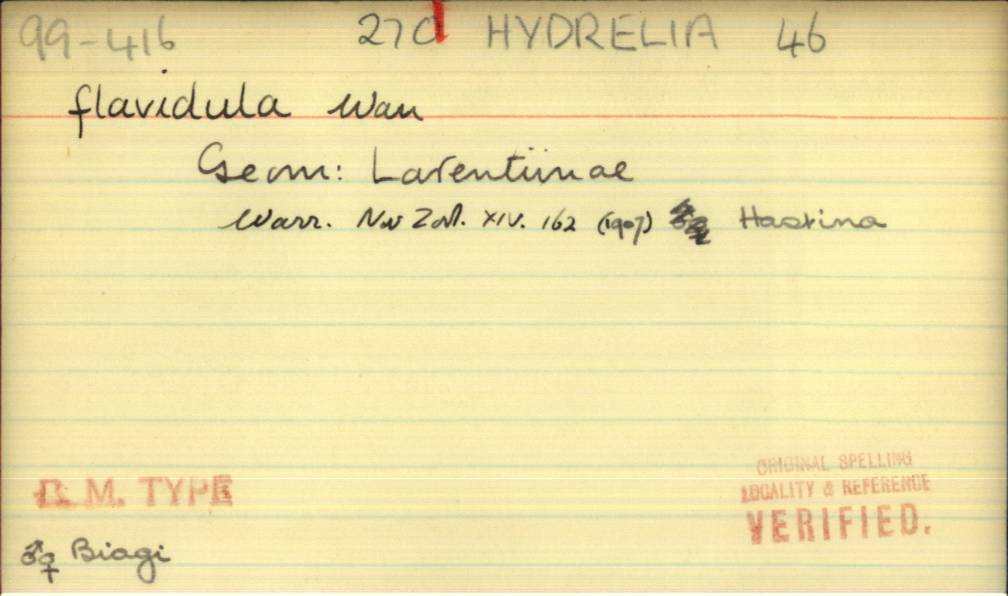 99-416 270 HYDRELIA 46
flavidula Warr
Geom: Larentiinae
Warr. Nov Zool. XIV. 162 (1907) Hastina
B. M. TYPE
ORIGINAL SPELLING
LOCALITY & REFERENCE
VERIFIED.
♂♀ Biagi